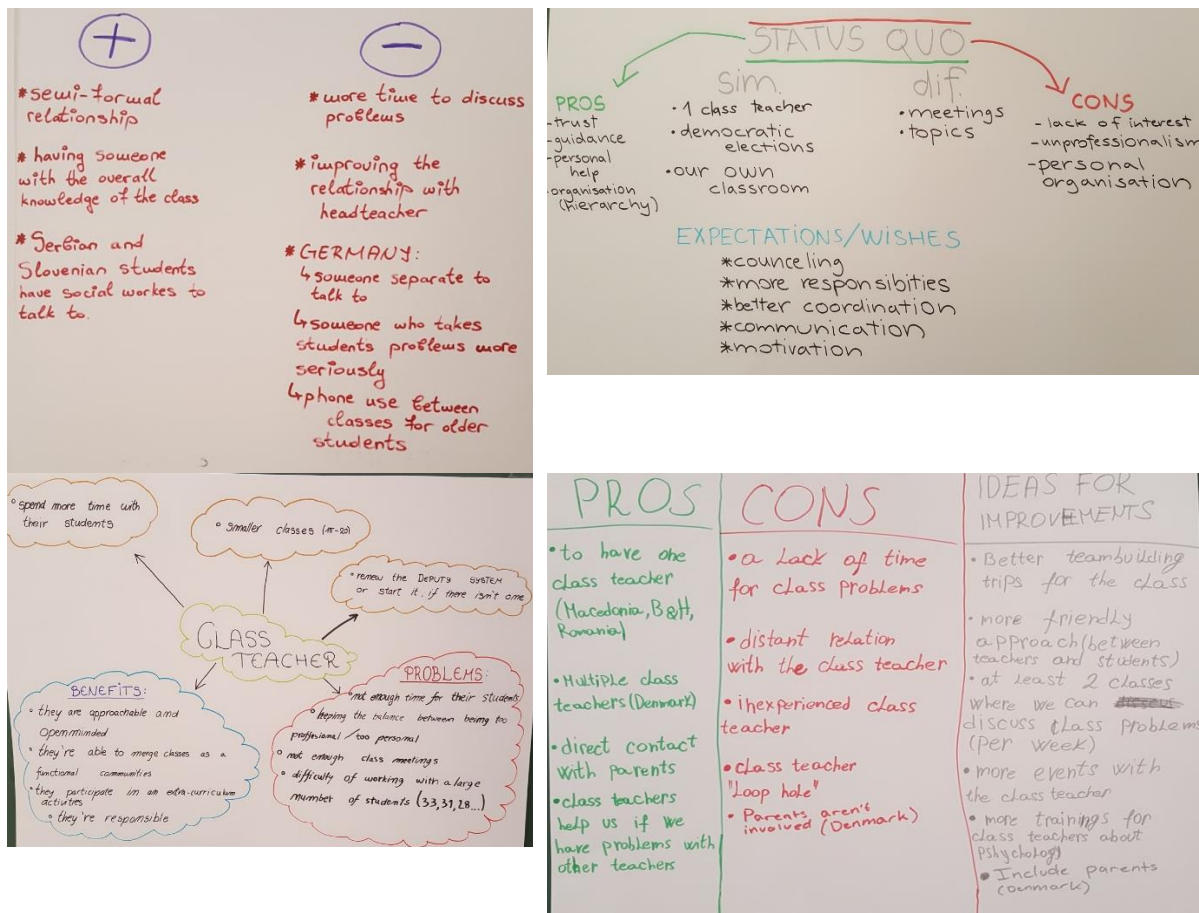 +
*semi-formal
relationship
*having someone
with the overall
knowledge of the class
*Serbian and
Slovenian students
have social workes to
talk to.
−
*more time to discuss
problems
*improving the
relationship with
headteacher
*GERMANY:
↳someone separate to
talk to
↳someone who takes
students problems more
seriously
↳phone use between
classes for older
students
STATUS QUO
PROS
-trust
-guidance
-personal
help
-organisation
(hierarchy)
sim.
• 1 class teacher
• democratic
elections
• our own
classroom
dif.
• meetings
• topics
CONS
- lack of interest
-unprofessionalism
-personal
organisation
EXPECTATIONS/WISHES
*counceling
*more responsibities
*better coordination
*communication
*motivation
° spend more time with
their students
° smaller classes
• renew the DEPUTY SYSTEM
or start it, if there isn't one
CLASS
TEACHER
BENEFITS:
• they are approachable and
openminded
• they're able to merge classes as a
functional communities
• they participate in an extra-curriculum
activities
• they're responsible
PROBLEMS:
• not enough time for their students
• keeping the balance between being too
proffesional / too personal
° not enough class meetings
° difficulty of working with a large
number of students (33,31,28...)
PROS
• to have one
class teacher
(Macedonia, B&H,
Romania)
• Multiple class
teachers (Denmark)
• direct contact
with parents
• class teachers
help us if we
have problems with
other teachers
CONS
• a Lack of time
for class problems
• distant relation
with the class teacher
• inexperienced class
teacher
• class teacher
"Loop hole"
• Parents aren't
involved (Denmark)
IDEAS FOR
IMPROVEMENTS
• Better teambuilding
trips for the class
• more friendly
approach (between
teachers and students)
• at least 2 classes
where we can
discuss class problems
(per week)
• more events with
the class teacher
• more trainings for
class teachers about
pshychology
• Include parents
(Denmark)